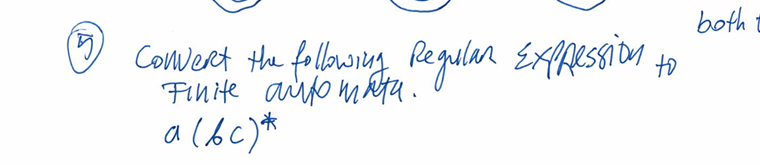 both
5 Convert the following Regular Expression to
Finite automata.
a(bc)*